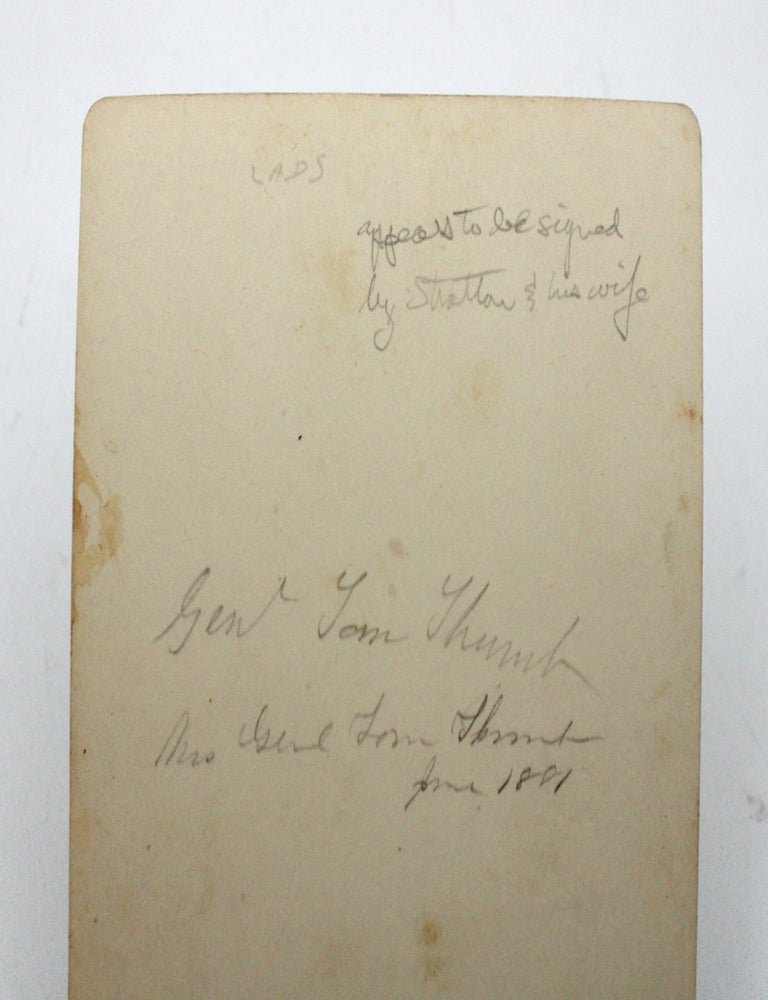 LADS
appears to be signed
by Stratton & his wife
Genl Tom Thumb
Mrs Genl Tom Thumb
June 1881